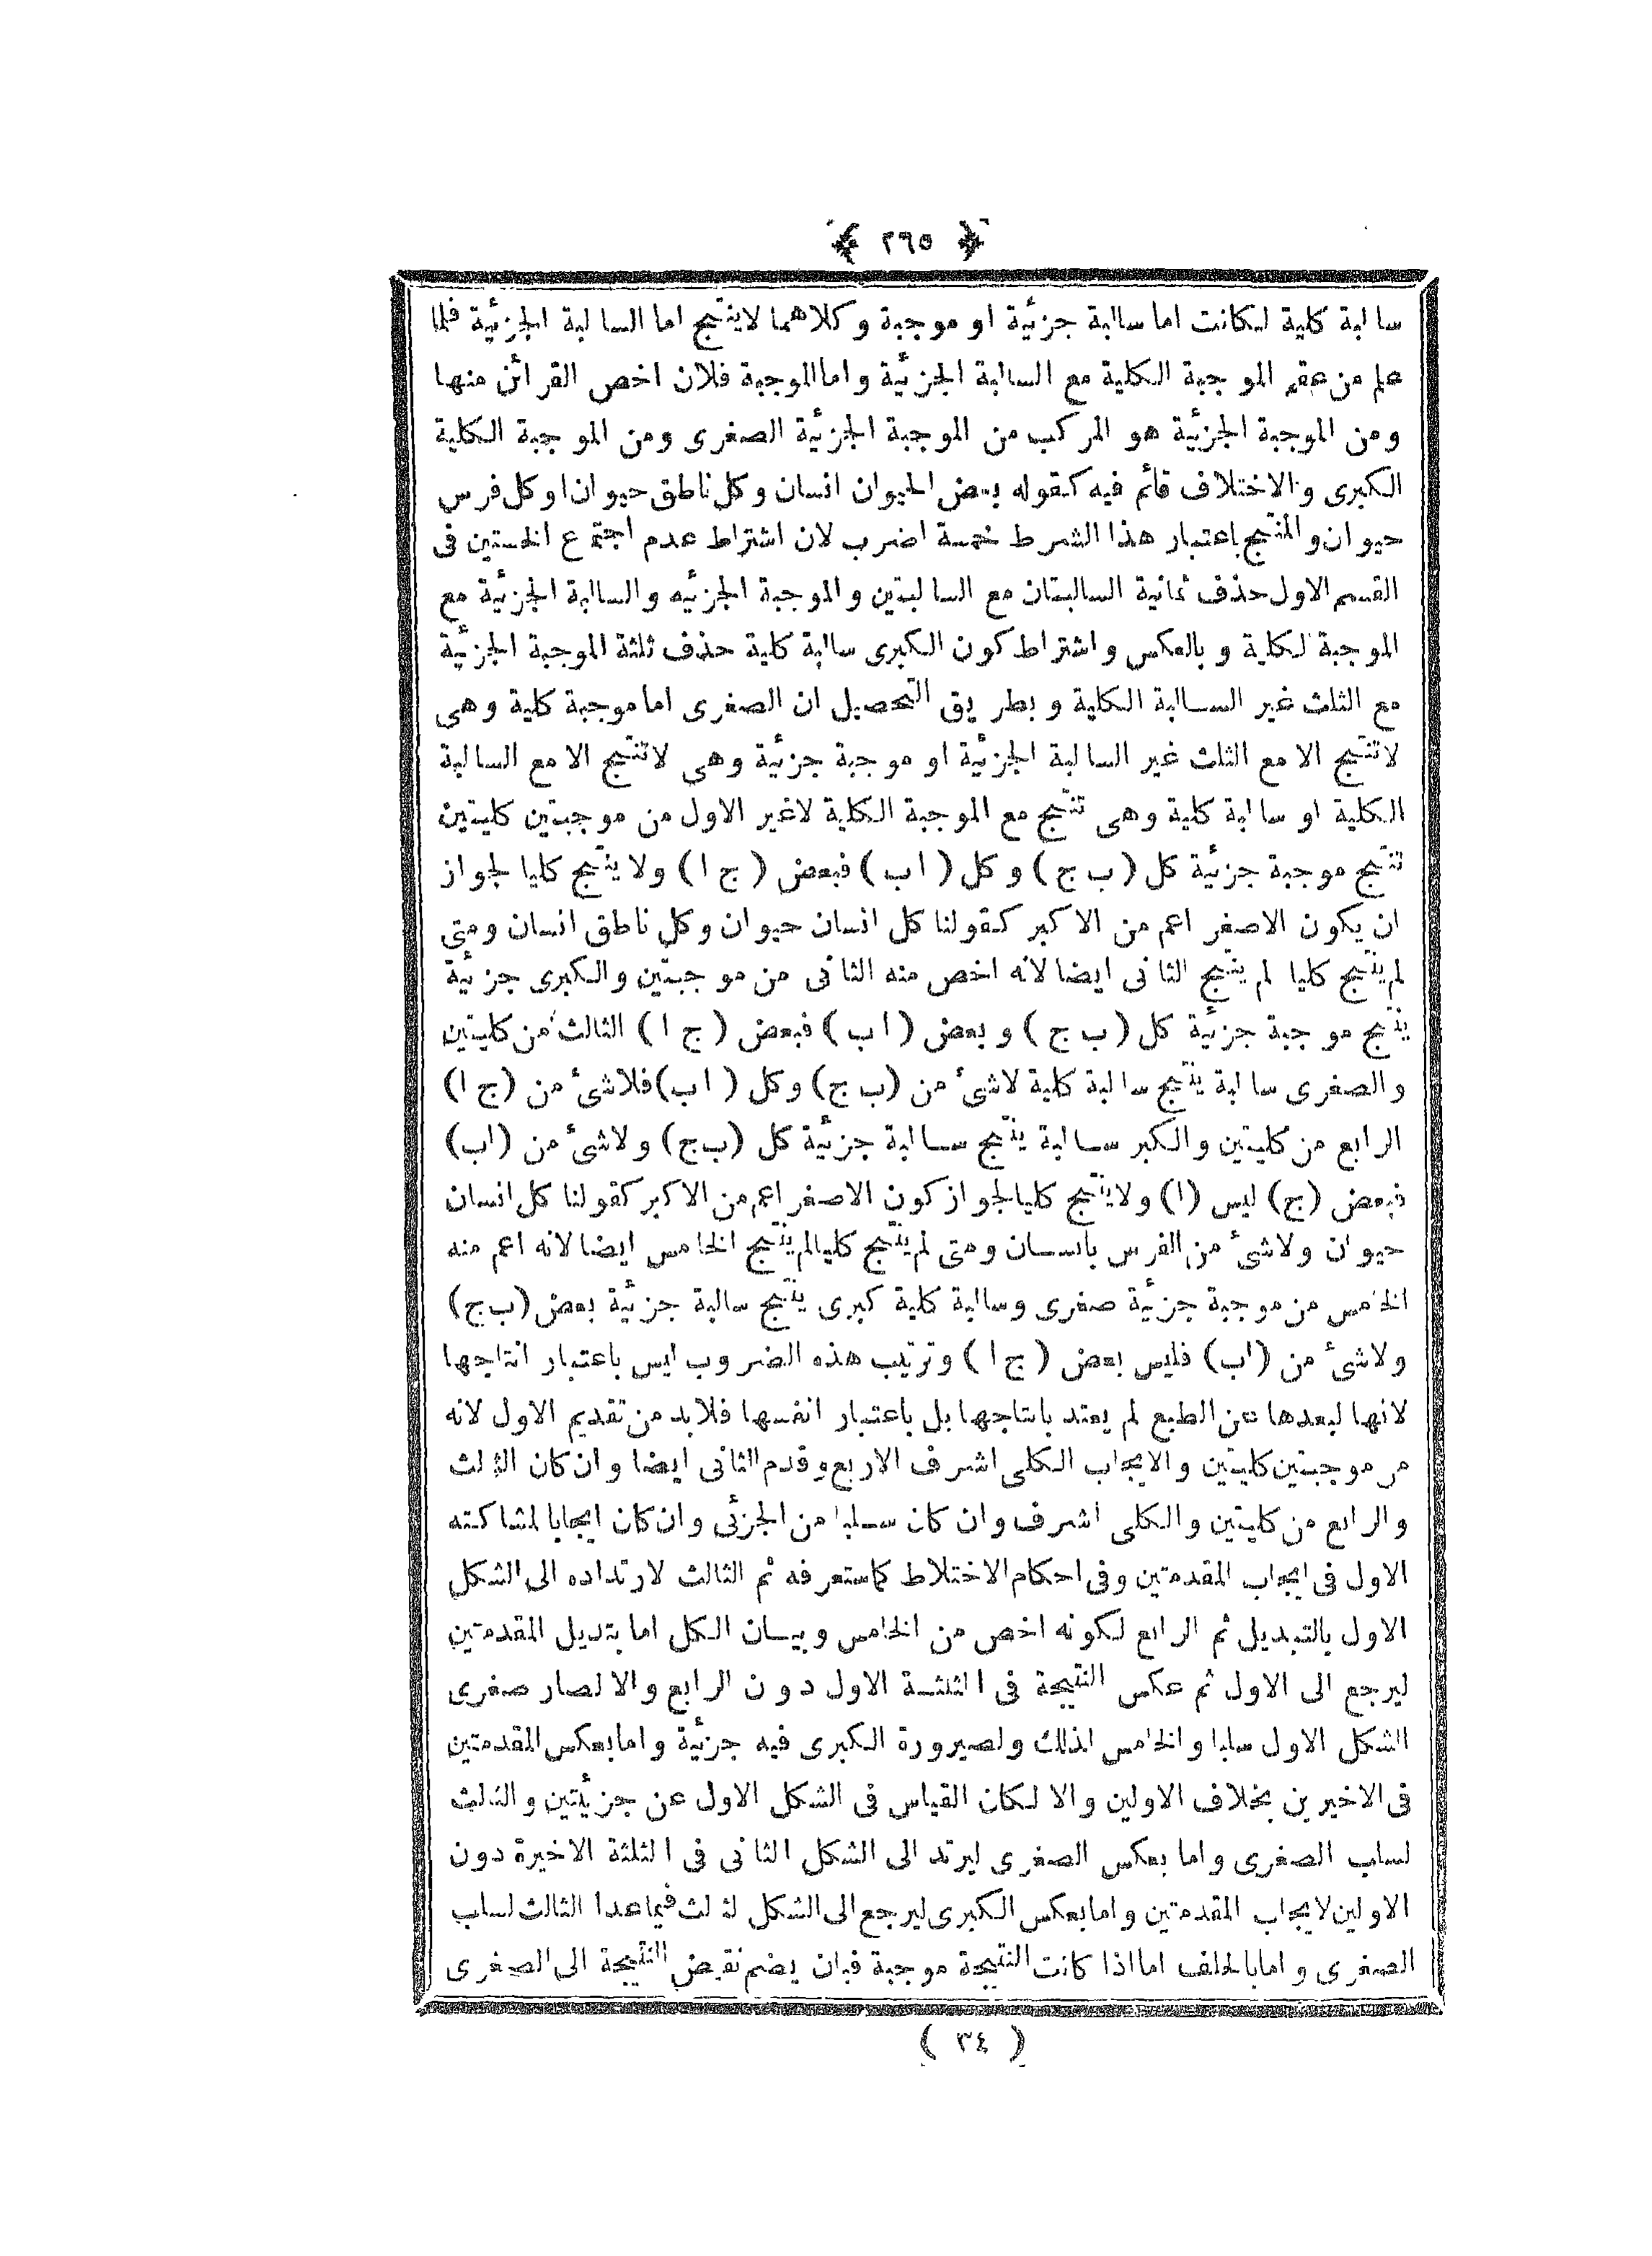 ﴿ ٢٦٥ ﴾
سالبة كلية لكانت اما سالبة جزئية او موجبة وكلاهما لاينتج اما السالبة الجزئية فلما
علم من عقم الموجبة الكلية مع السالبة الجزئية واما الموجبة فلان اخص القرائن منها
ومن الموجبة الجزئية هو المركب من الموجبة الجزئية الصغرى ومن الموجبة الكلية
الكبرى والاختلاف قائم فيه كقوله بعض الحيوان انسان وكل ناطق حيوان او كل فرس
حيوان والمنتج باعتبار هذا الشرط خمسة اضرب لان اشتراط عدم اجتماع الخستين فى
القسم الاول حذف ثمانية السالبتان مع السالبتين والموجبة الجزئيه والسالبة الجزئية مع
الموجبة لكلية وبالعكس واشتراط كون الكبرى سالبة كلية حذف ثلثة الموجبة الجزئية
مع الثلث غير السالبة الكلية وبطريق التحصيل ان الصغرى اما موجبة كلية وهى
لاتنتج الا مع الثلث غير السالبة الجزئية او موجبة جزئية وهى لاتنتج الا مع السالبة
الكلية او سالبة كلية وهى تنتج مع الموجبة الكلية لاغير الاول من موجبتين كليتين
تنتج موجبة جزئية كل (ب ج) وكل (اب) فبعض (ج ا) ولا ينتج كليا لجواز
ان يكون الاصغر اعم من الاكبر كقولنا كل انسان حيوان وكل ناطق انسان ومتى
لم ينتج كليا لم ينتج الثانى ايضا لانه اخص منه الثانى من موجبتين والكبرى جزئية
ينتج موجبة جزئية كل (ب ج) وبعض (اب) فبعض (ج ا) الثالث من كليتين
والصغرى سالبة ينتج سالبة كلية لاشئ من (ب ج) وكل (اب) فلاشئ من (ج ا)
الرابع من كليتين والكبر سالبة ينتج سالبة جزئية كل (ب ج) ولاشئ من (اب)
فبعض (ج) ليس (ا) ولاينتج كليا لجواز كون الاصغر اعم من الاكبر كقولنا كل انسان
حيوان ولاشئ من الفرس بانسان ومتى لم ينتج كليا لم ينتج الخامس ايضا لانه اعم منه
الخامس من موجبة جزئية صغرى وسالبة كلية كبرى ينتج سالبة جزئية بعض (ب ج)
ولاشئ من (اب) فليس بعض (ج ا) وترتيب هذه الضروب ليس باعتبار انتاجها
لانها لبعدها عن الطبع لم يعتد بانتاجها بل باعتبار انفسها فلابد من تقديم الاول لانه
من موجبتين كليتين والايجاب الكلى اشرف الاربع وقدم الثانى ايضا وان كان الثالث
والرابع من كليتين والكلى اشرف وان كان سلبا من الجزئى وان كان ايجابا لمشاركته
الاول فى ايجاب المقدمتين وفى احكام الاختلاط كما ستعرفه ثم الثالث لارتداده الى الشكل
الاول بالتبديل ثم الرابع لكونه اخص من الخامس وبيان الكل اما بتبديل المقدمتين
ليرجع الى الاول ثم عكس النتيجة فى الثلثة الاول دون الرابع والا لصار صغرى
الشكل الاول سلبا والخامس لذلك ولصيرورة الكبرى فيه جزئية واما بعكس المقدمتين
فى الاخيرين بخلاف الاولين والا لكان القياس فى الشكل الاول عن جزئيتين والثالث
لسلب الصغرى واما بعكس الصغرى ليرتد الى الشكل الثانى فى الثلثة الاخيرة دون
الاولين لايجاب المقدمتين واما بعكس الكبرى ليرجع الى الشكل الثالث فيما عدا الثالث لسلب
الصغرى واما بالخلف اما اذا كانت النتيجة موجبة فبان يضم نقيض النتيجة الى الصغرى
( ٣٤ )